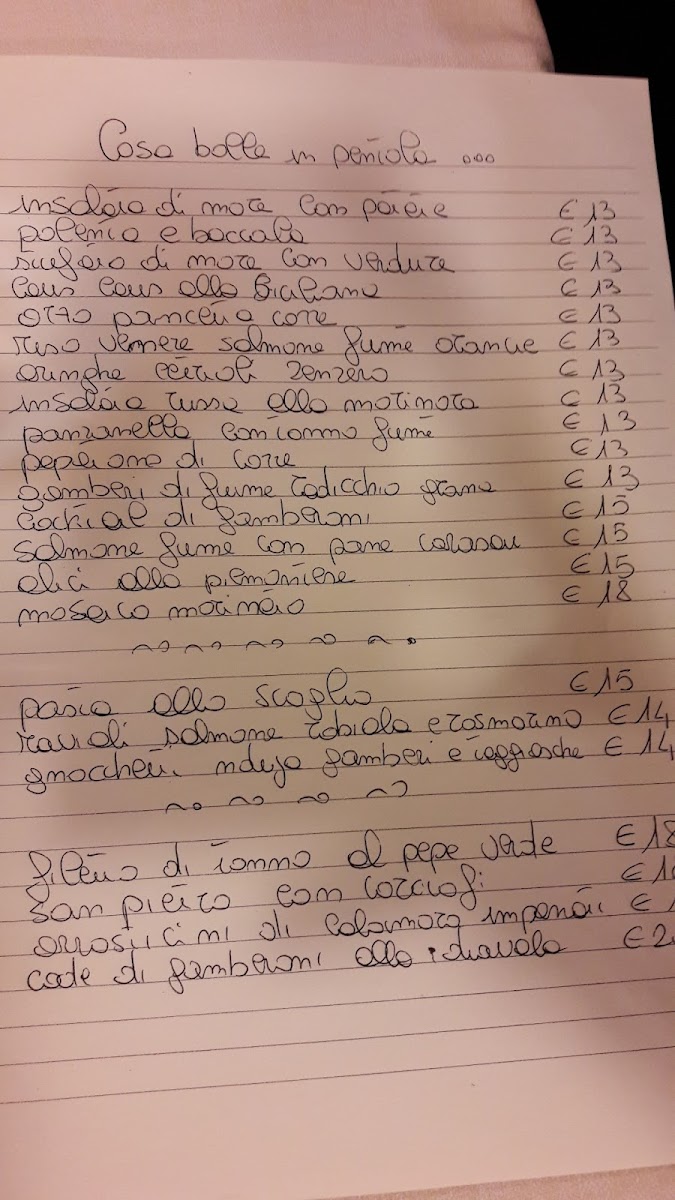 Cosa bolle in pentola ...
insalata di mare con patate € 13
polenta e baccalà € 13
sutè di mare con verdure € 13
cous cous alla siciliana € 13
orzo pancetta e corre € 13
riso venere salmone fumè arance € 13
aringhe cetrioli zenzero € 13
insalata russa alla marinara € 13
panzanella con tonno fumè € 13
peperone di corre € 13
gamberi di fiume radicchio grana € 13
Cocktail di gamberoni € 15
salmone fumè con pane carasau € 15
alici alla piemontese € 15
mosaico marinato € 18
pasta allo scoglio € 15
ravioli salmone robiola e rosmarino € 14
gnocchetti nduja gamberi e taggiasche € 14
filetto di tonno al pepe verde € 18
San pietro con carciofi €
arrosticini di calamaro impanati €
code di gamberoni alla diavola €